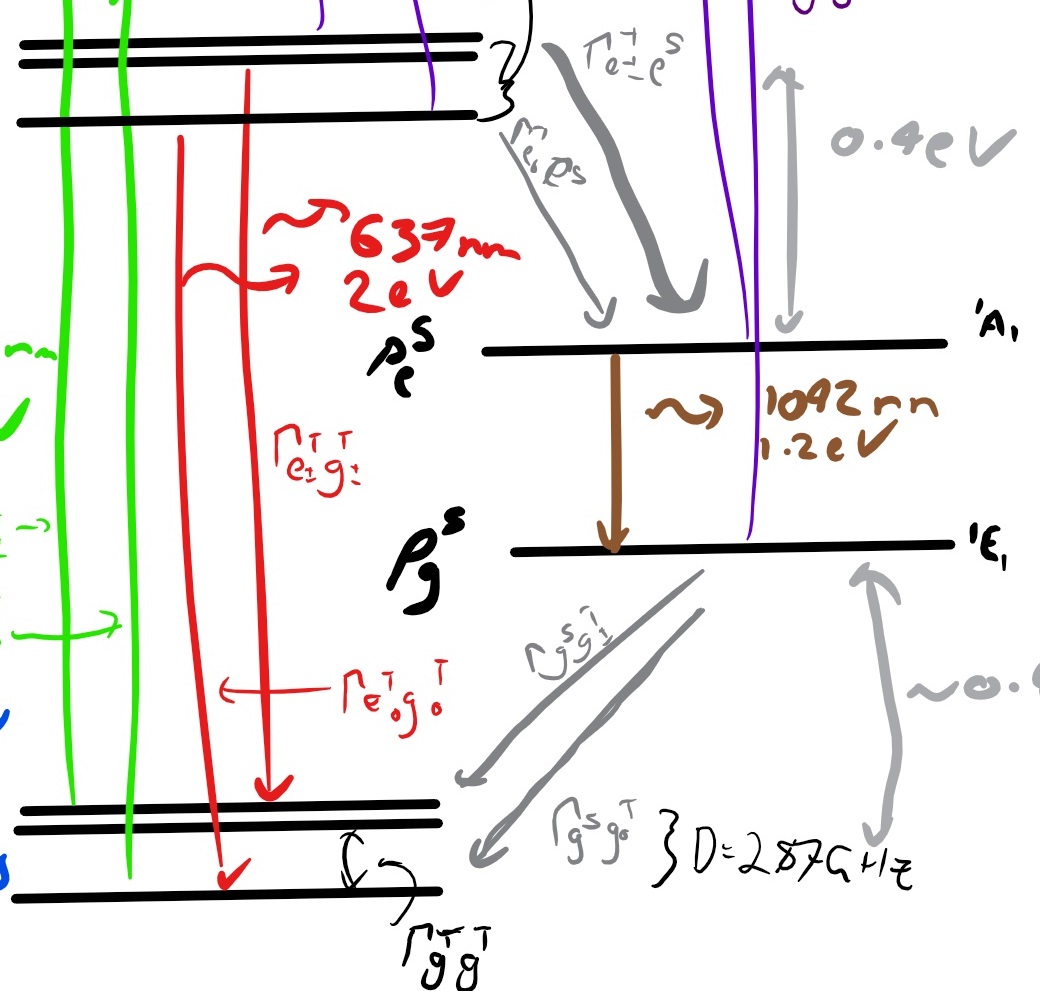 Γe±eˢ
Γe₀eˢ
0.4eV
637nm
2eV
nm
ρₑˢ
¹A₁
1042nm
1.2eV
Γeᵀ±gᵀ±
ρgˢ
¹E₁
Γgˢgᵀ±
Γeᵀ₀g₀ᵀ
~0.
Γgˢg₀ᵀ } D=2.87GHz
Γgᵀgᵀ